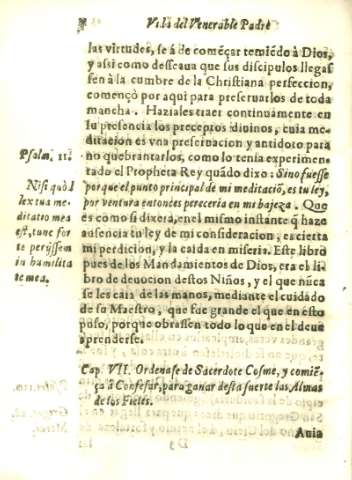 Vida del Venerable Padre
las virtudes, se á de començar temiẽdo à Dios,
y assi como desseaua que sus discipulos llegas
sen à la cumbre de la Christiana perfeccion,
començò por aqui para preseruarlos de toda
mancha. Haziales traer continuamente en
su presencia los preceptos diuinos, cuia me-
ditacion es vna preseruacion y antidoto para
no quebrantarlos, como lo tenía experimen-
tado el Propheta Rey quãdo dixo: Sino fuesse
porque el punto principal de mi meditaciõ, es tu ley,
por ventura entonces pereceria en mi bajeza. Que
es como si dixera, en el mismo instante q̃ haze
ausencia tu ley de mi consideracion, es cierta
mi perdicion, y la caida en miseria. Este libro
pues de los Mandamientos de Dios, era el li-
bro de deuocion destos Niños, y el que nũca
se les caìa de las manos, mediante el cuidado
de su Maestro, que fue grande el que en esto
puso, porque obrassen todo lo que en el deue
aprenderse.
Psalm. 118
Nisi quòd
lex tua me-
ditatio mea
est, tunc for
te perijssem
in humilita
te mea.
Cap. VII. Ordenase de Sacerdote Cosme, y comiẽ-
ça à Confesar, para ganar desta suerte las Almas
de los Fieles.
Auia